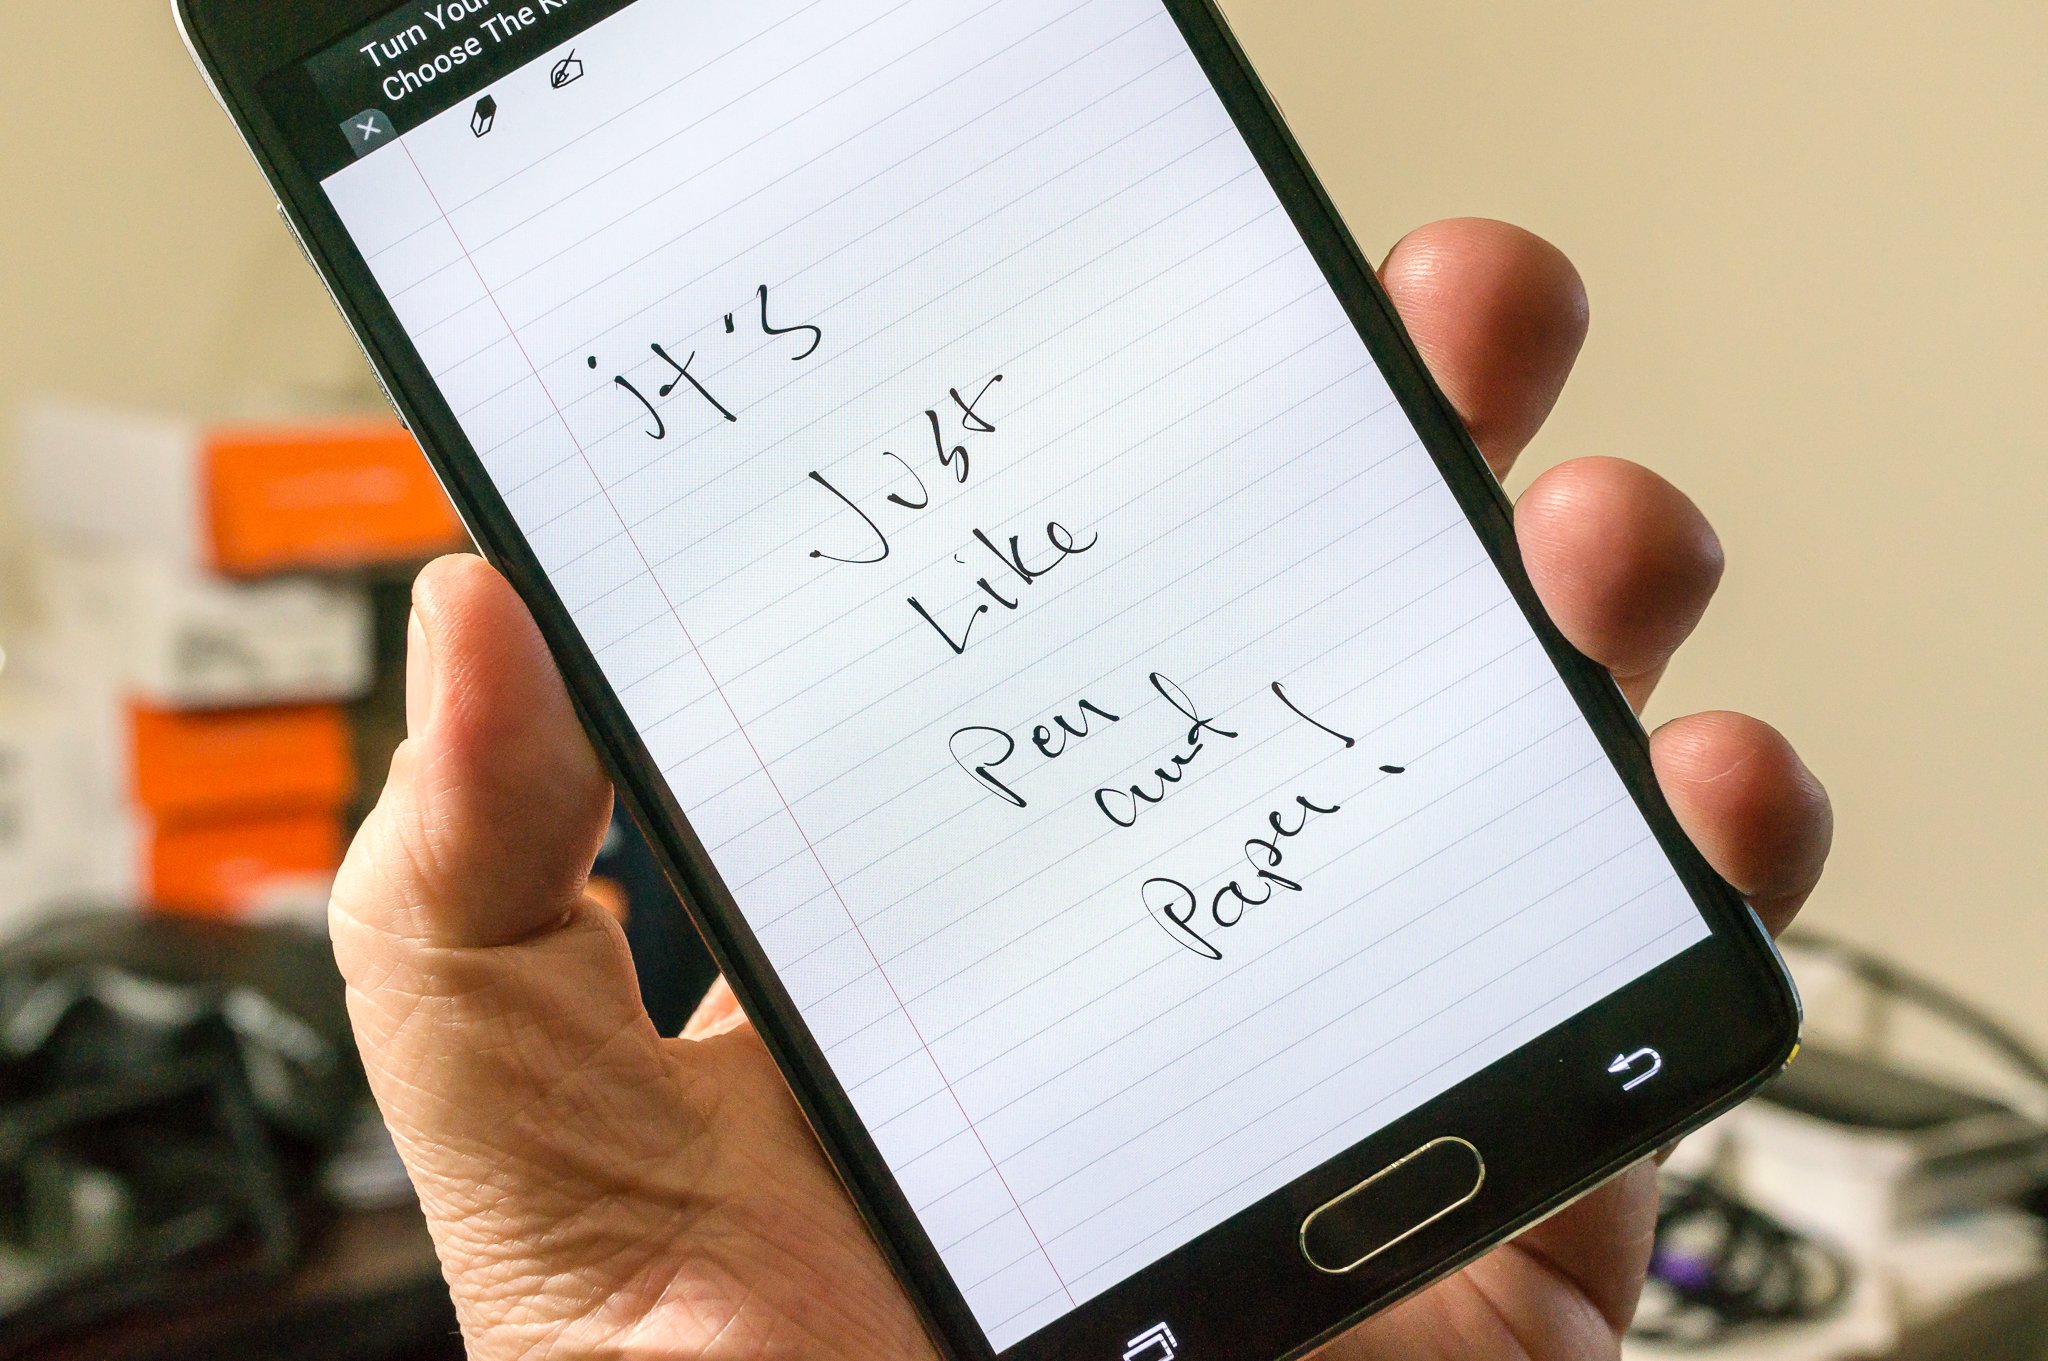 Turn Your
Choose The
it's
Just
Like
Pen
and
Paper!